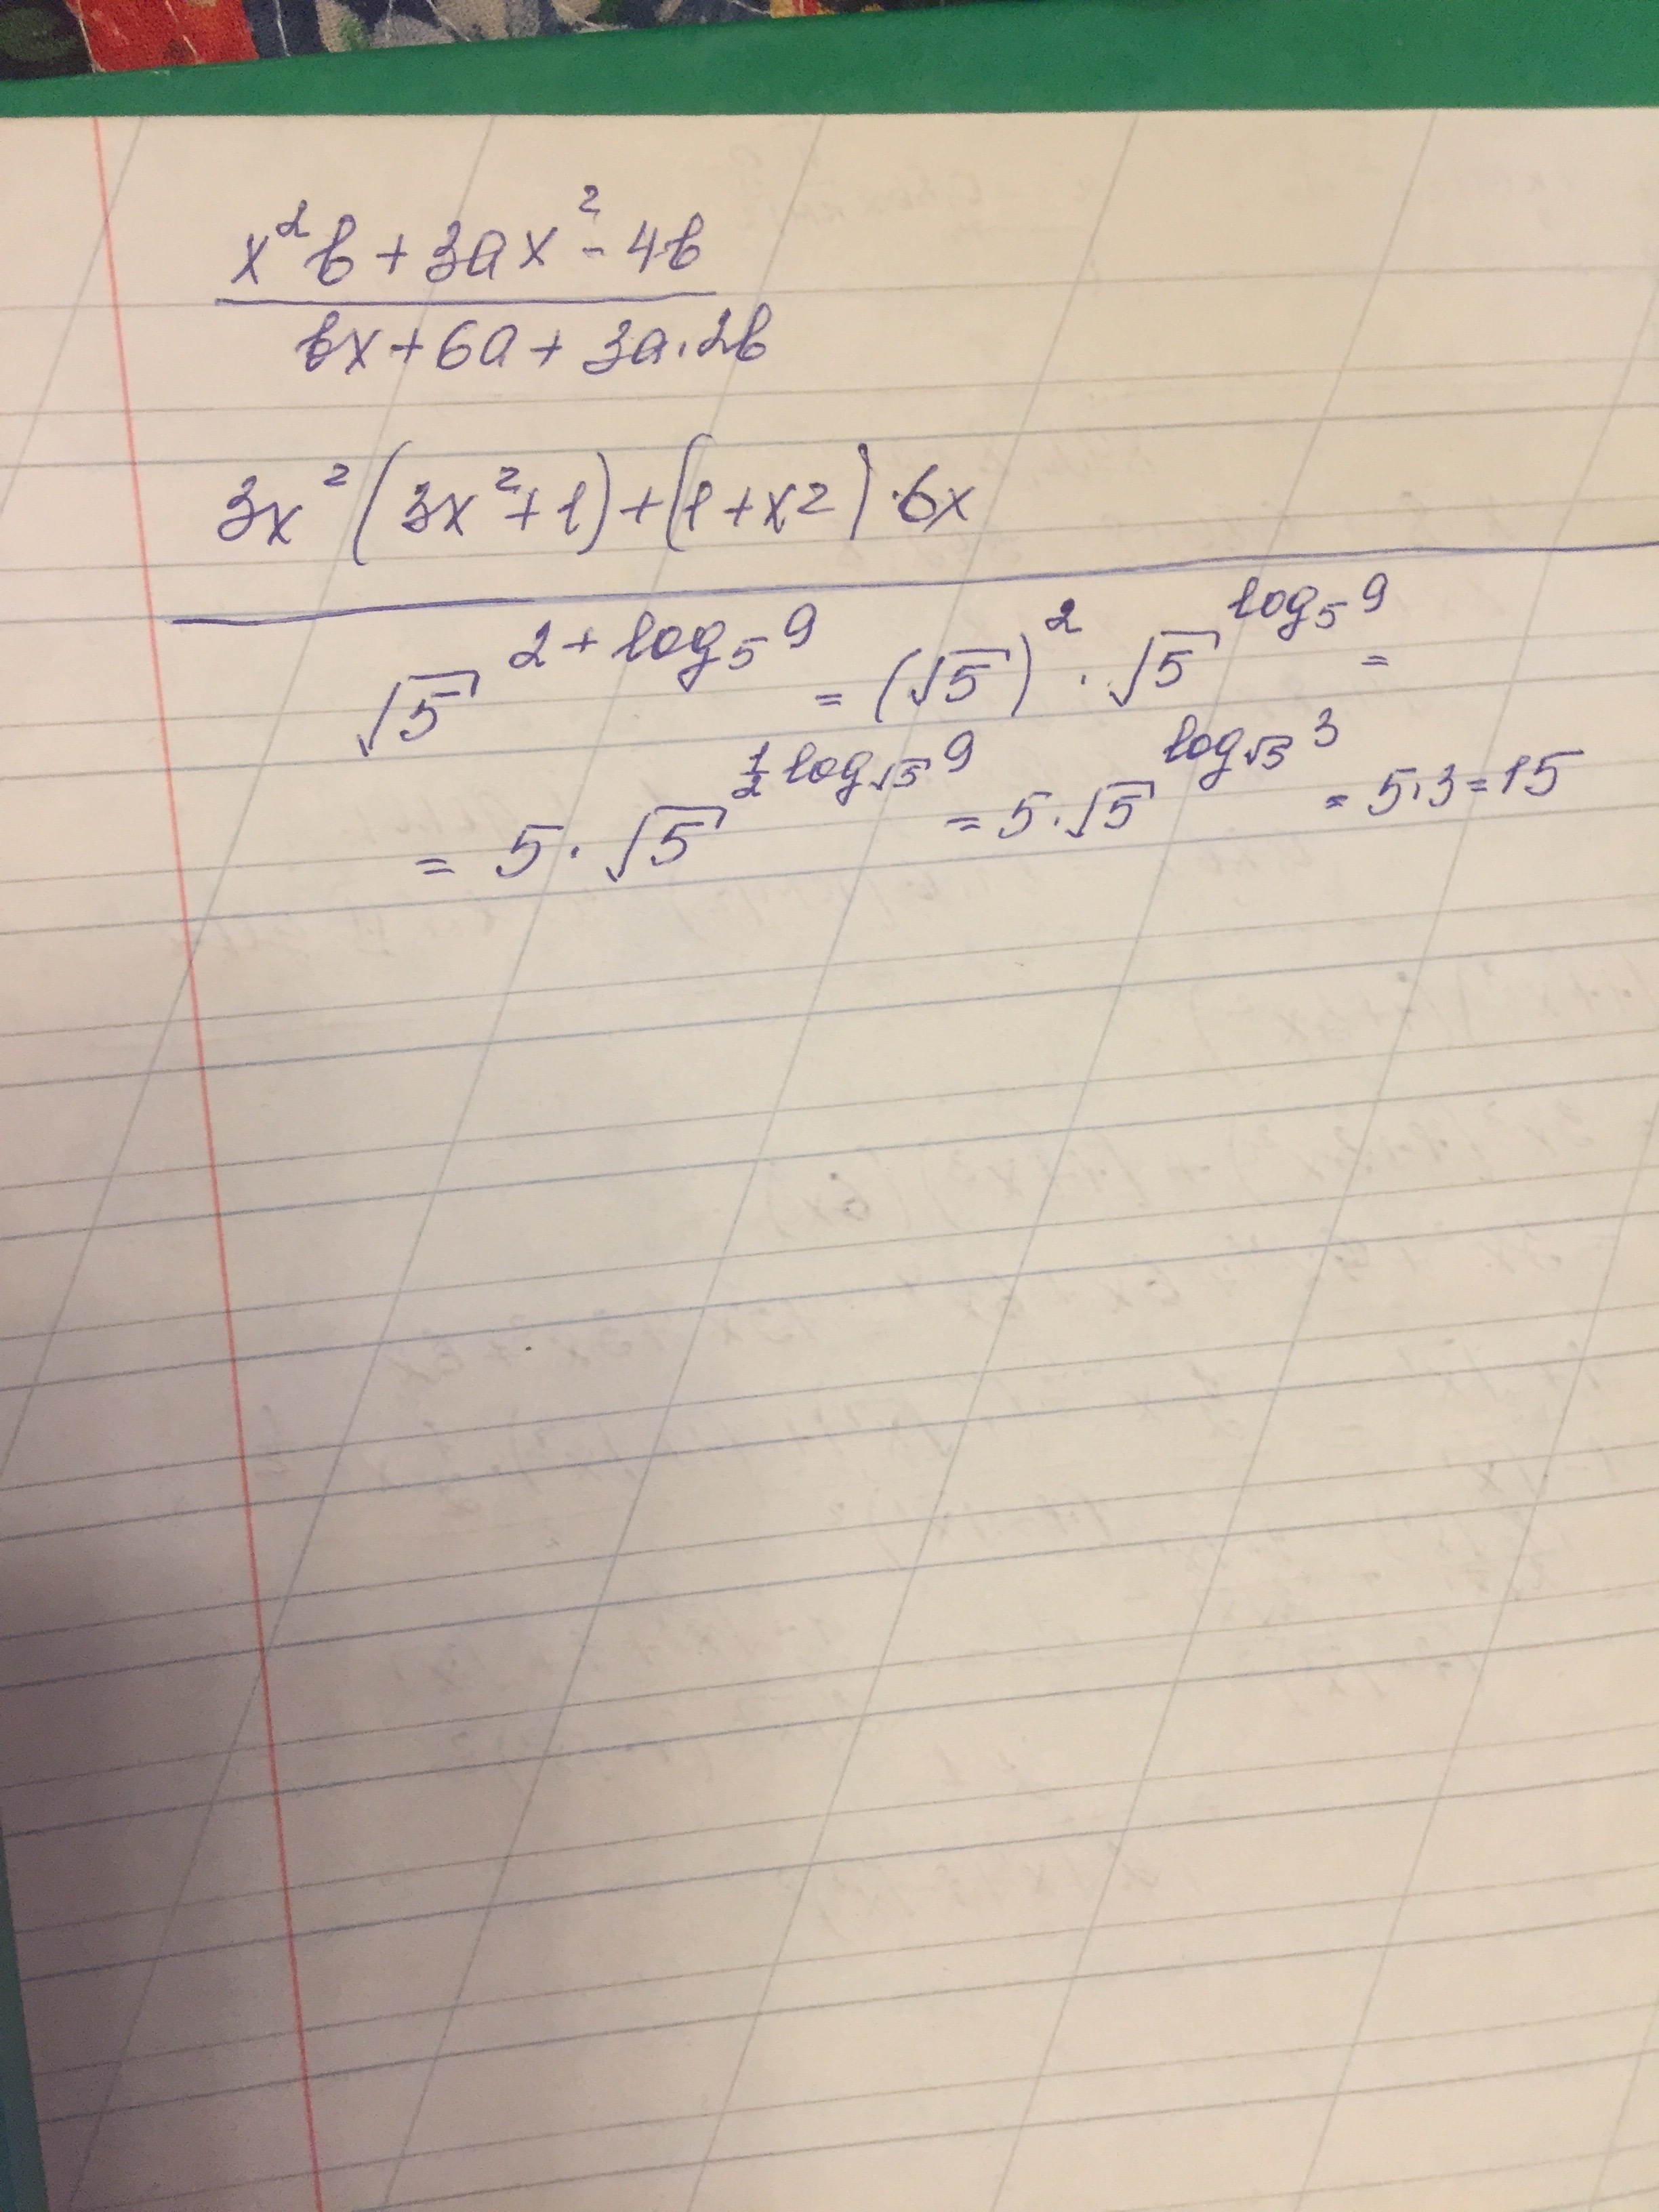 x²b + 3ax² - 4b
bx + 6a + 3a · 2b
3x² (3x² + 1) + (1 + x2) · 6x
√5^(2 + log₅ 9) = (√5)² · √5^(log₅ 9) =
= 5 · √5^(½ log_√5 9) = 5 · √5^(log_√5 3) = 5 · 3 = 15